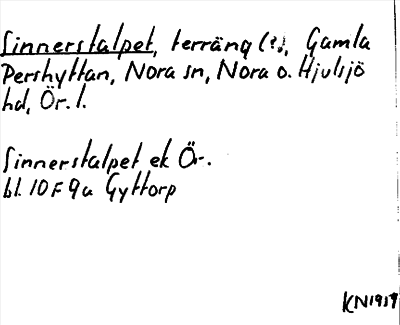 Sinnerstalpet, terräng (?), Gamla
Pershyttan, Nora sn, Nora o. Hjulsjö
hd, Ör. l.
Sinnerstalpet ek Ör.
bl. 10 F 9a Gyttorp